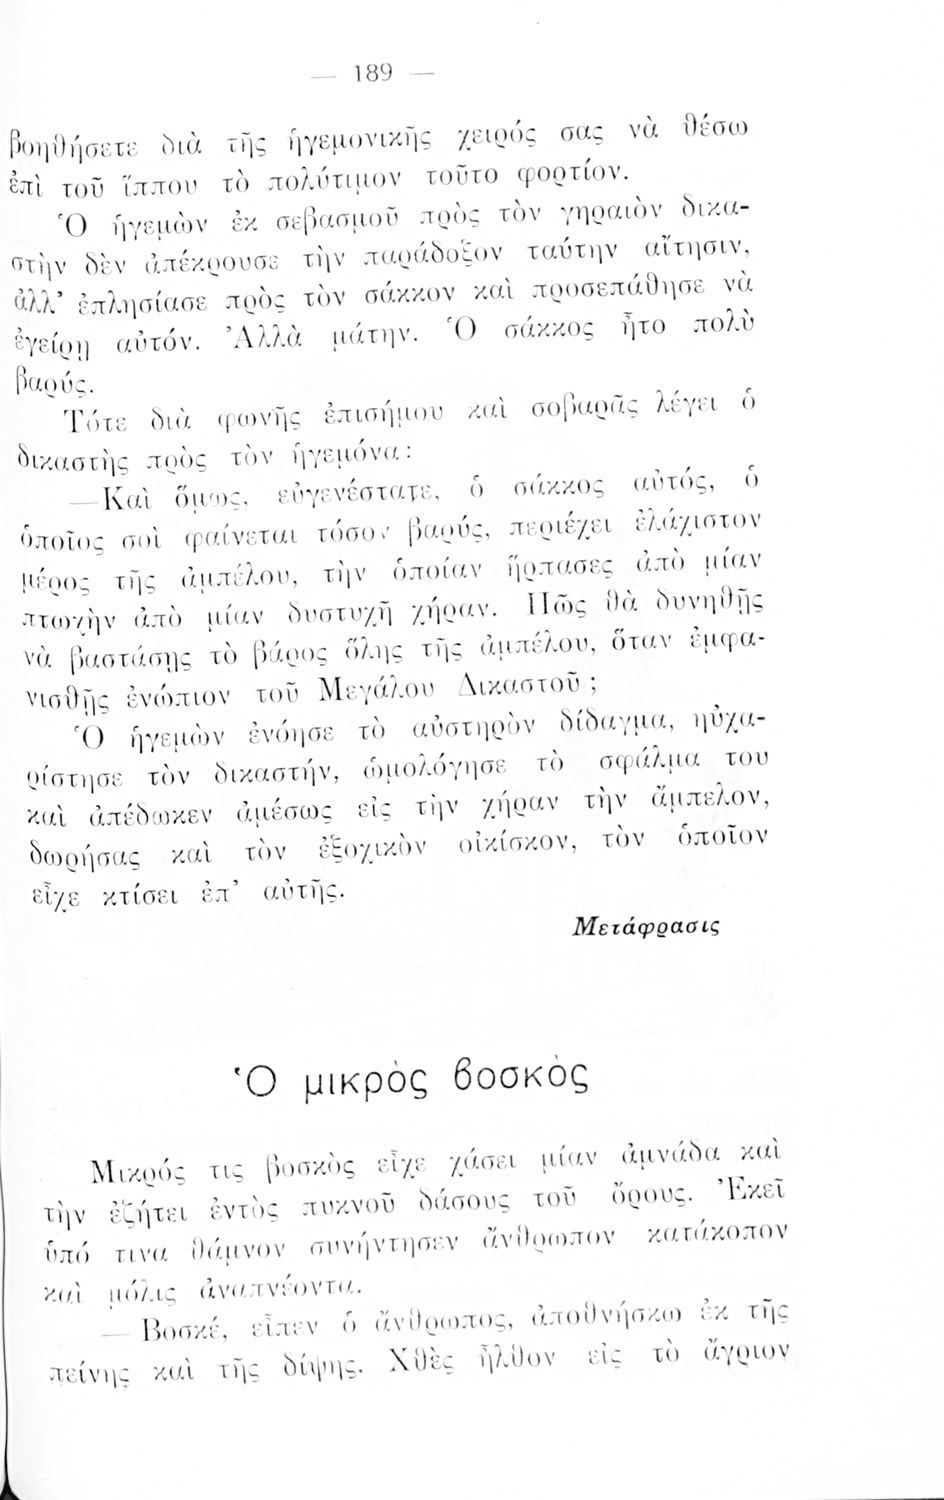 — 189 —
βοηθήσετε διὰ τῆς ἡγεμονικῆς χειρός σας νὰ θέσω
ἐπὶ τοῦ ἵππου τὸ πολύτιμον τοῦτο φορτίον.
Ὁ ἡγεμὼν ἐκ σεβασμοῦ πρὸς τὸν γηραιὸν δικα-
στὴν δὲν ἀπέκρουσε τὴν παράδοξον ταύτην αἴτησιν,
ἀλλ’ ἐπλησίασε πρὸς τὸν σάκκον καὶ προσεπάθησε νὰ
ἐγείρῃ αὐτόν. Ἀλλὰ μάτην. Ὁ σάκκος ἦτο πολὺ
βαρύς.
Τότε διὰ φωνῆς ἐπισήμου καὶ σοβαρᾶς λέγει ὁ
δικαστὴς πρὸς τὸν ἡγεμόνα:
—Καὶ ὅμως, εὐγενέστατε, ὁ σάκκος αὐτός, ὁ
ὁποῖος σοὶ φαίνεται τόσον βαρύς, περιέχει ἐλάχιστον
μέρος τῆς ἀμπέλου, τὴν ὁποίαν ἥρπασες ἀπὸ μίαν
πτωχὴν ἀπὸ μίαν δυστυχῆ χήραν. Πῶς θὰ δυνηθῇς
νὰ βαστάσῃς τὸ βάρος ὅλης τῆς ἀμπέλου, ὅταν ἐμφα-
νισθῇς ἐνώπιον τοῦ Μεγάλου Δικαστοῦ ;
Ὁ ἡγεμὼν ἐνόησε τὸ αὐστηρὸν δίδαγμα, ηὐχα-
ρίστησε τὸν δικαστήν, ὡμολόγησε τὸ σφάλμα του
καὶ ἀπέδωκεν ἀμέσως εἰς τὴν χήραν τὴν ἄμπελον,
δωρήσας καὶ τὸν ἐξοχικὸν οἰκίσκον, τὸν ὁποῖον
εἶχε κτίσει ἐπ’ αὐτῆς.
Μετάφρασις
Ὁ μικρὸς βοσκὸς
Μικρός τις βοσκὸς εἶχε χάσει μίαν ἀμνάδα καὶ
τὴν ἐζήτει ἐντὸς πυκνοῦ δάσους τοῦ ὄρους. Ἐκεῖ
ὑπό τινα θάμνον συνήντησεν ἄνθρωπον κατάκοπον
καὶ μόλις ἀναπνέοντα.
— Βοσκέ, εἶπεν ὁ ἄνθρωπος, ἀποθνήσκω ἐκ τῆς
πείνης καὶ τῆς δίψης. Χθὲς ἦλθον εἰς τὸ ἄγριον